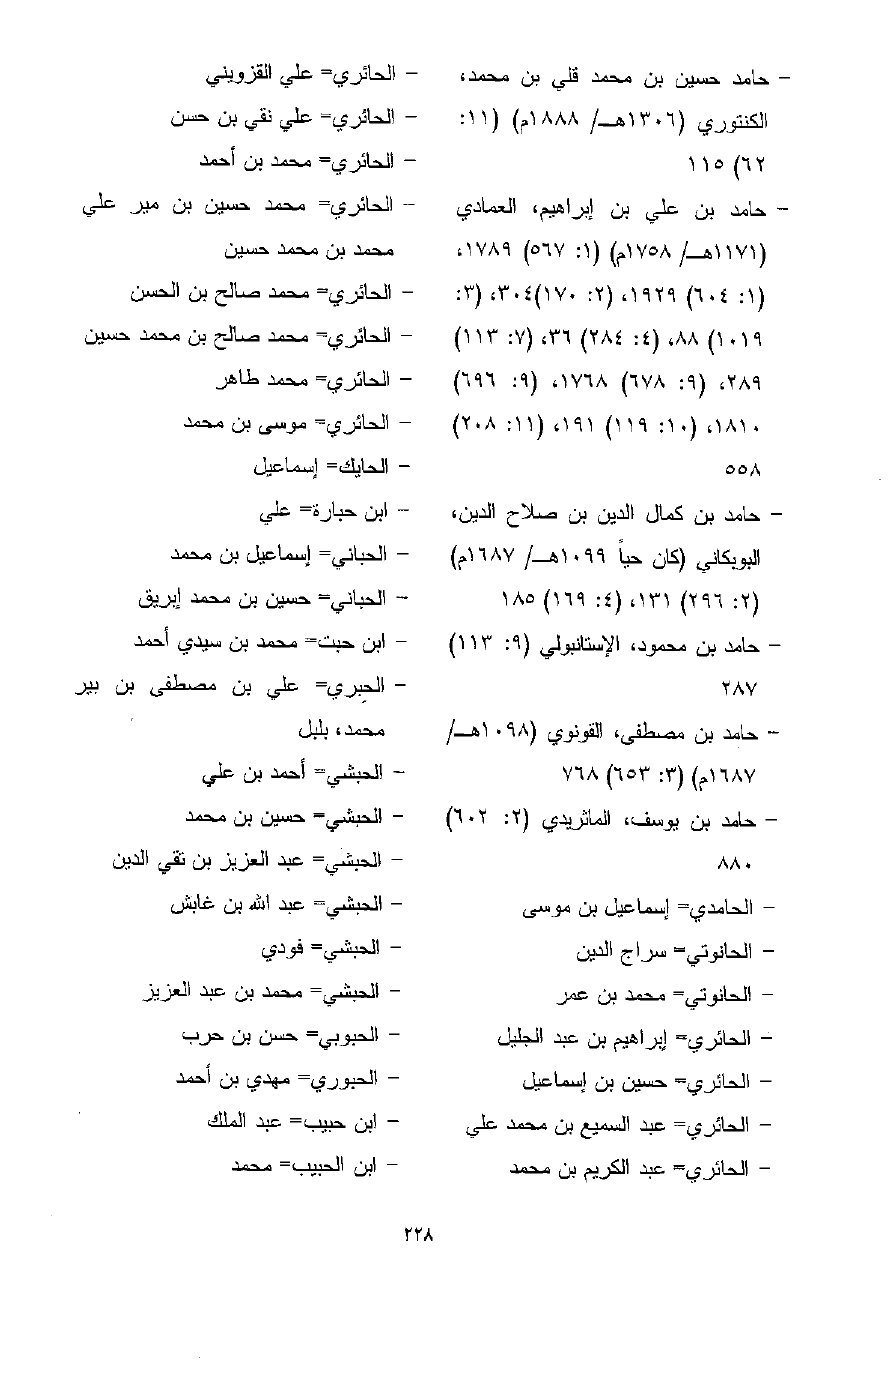 - حامد حسين بن محمد قلي بن محمد،
الكنتوري (١٣٠٦هـ/ ١٨٨٨م) (١١:
٦٢) ١١٥
- حامد بن علي بن إبراهيم، العمادي
(١١٧١هـ/ ١٧٥٨م) (١: ٥٦٧) ١٧٨٩،
(١: ٦٠٤) ١٩٢٩، (٢: ١٧٠)٣٠٤، (٣:
١٠١٩) ٨٨، (٤: ٢٨٤) ٣٦، (٧: ١١٣)
٢٨٩، (٩: ٦٧٨) ١٧٦٨، (٩: ٦٩٦)
١٨١٠، (١٠: ١١٩) ١٩١، (١١: ٢٠٨)
٥٥٨
- حامد بن كمال الدين بن صلاح الدين،
البوبكاني (كان حياً ١٠٩٩هـ/ ١٦٨٧م)
(٢: ٢٩٦) ١٣١، (٤: ١٦٩) ١٨٥
- حامد بن محمود، الإستانبولي (٩: ١١٣)
٢٨٧
- حامد بن مصطفى، القونوي (١٠٩٨هـ/
١٦٨٧م) (٣: ٦٥٣) ٧٦٨
- حامد بن يوسف، الماثريدي (٢: ٦٠٢)
٨٨٠
- الحامدي= إسماعيل بن موسى
- الحانوتي= سراج الدين
- الحانوتي= محمد بن عمر
- الحائري= إبراهيم بن عبد الجليل
- الحائري= حسين بن إسماعيل
- الحائري= عبد السميع بن محمد علي
- الحائري= عبد الكريم بن محمد
- الحائري= علي القزويني
- الحائري= علي نقي بن حسن
- الحائري= محمد بن أحمد
- الحائري= محمد حسين بن مير علي
محمد بن محمد حسين
- الحائري= محمد صالح بن الحسن
- الحائري= محمد صالح بن محمد حسين
- الحائري= محمد طاهر
- الحائري= موسى بن محمد
- الحايك= إسماعيل
- ابن حبارة= علي
- الحباني= إسماعيل بن محمد
- الحباني= حسين بن محمد إبريق
- ابن حبت= محمد بن سيدي أحمد
- الحبري= علي بن مصطفى بن بير
محمد، بلبل
- الحبشي= أحمد بن علي
- الحبشي= حسين بن محمد
- الحبشي= عبد العزيز بن تقي الدين
- الحبشي= عبد الله بن غابش
- الحبشي= فودي
- الحبشي= محمد بن عبد العزيز
- الحبوبي= حسن بن حرب
- الحبوري= مهدي بن أحمد
- ابن حبيب= عبد الملك
- ابن الحبيب= محمد
٢٢٨